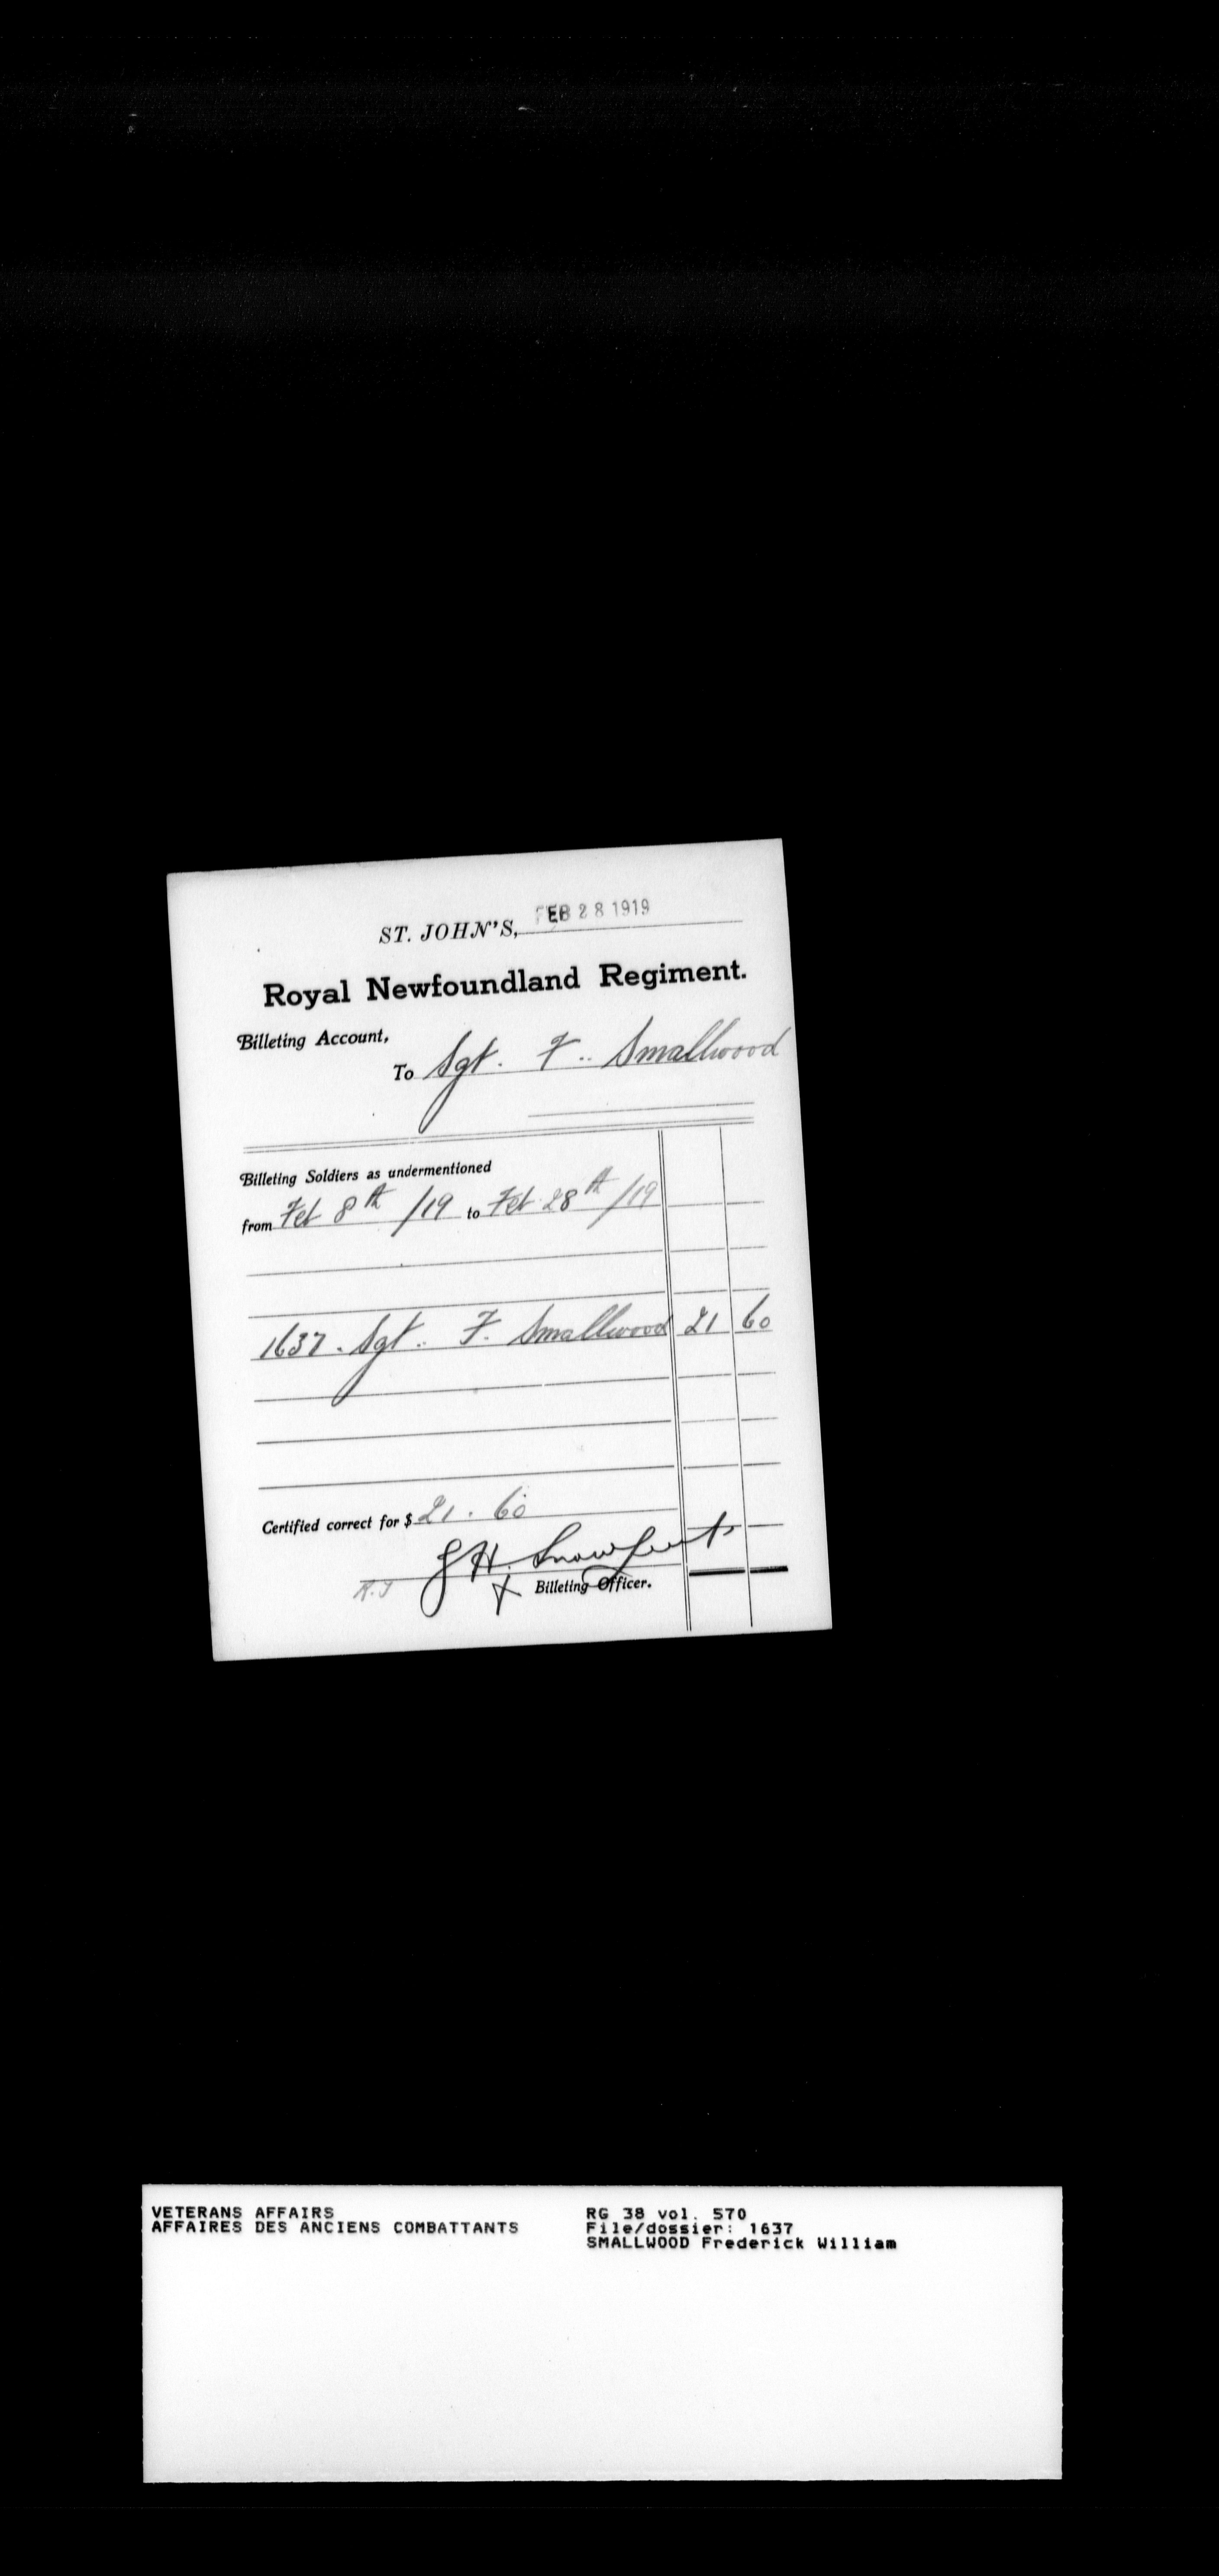 ST. JOHN'S, FEB 28 1919
Royal Newfoundland Regiment.
Billeting Account,
To Sgt. F.. Smallwood
Billeting Soldiers as undermentioned
from Feb 8th /19 to Feb 28th /19
1637. Sgt.. F. Smallwood 21 60
Certified correct for $ 21. 60
Billeting Officer.
VETERANS AFFAIRS
AFFAIRES DES ANCIENS COMBATTANTS
RG 38 vol. 570
File/dossier: 1637
SMALLWOOD Frederick William